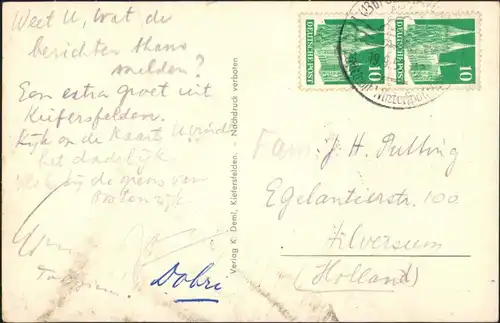 Weet U, wat de
berichten thans
melden?
Een extra groet uit
Kiefersfelden.
Kijk op de Kaart U vindt
het dadelijk
vlak bij de grens van
Oostenrijk
Dobri
Verlag K. Deml, Kiefersfelden. - Nachdruck verboten
DEUTSCHE POST
10
DEUTSCHE POST
10
(13b)
Fam. J. H. Pulling
Egelantierstr. 100
Hilversum
(Holland)